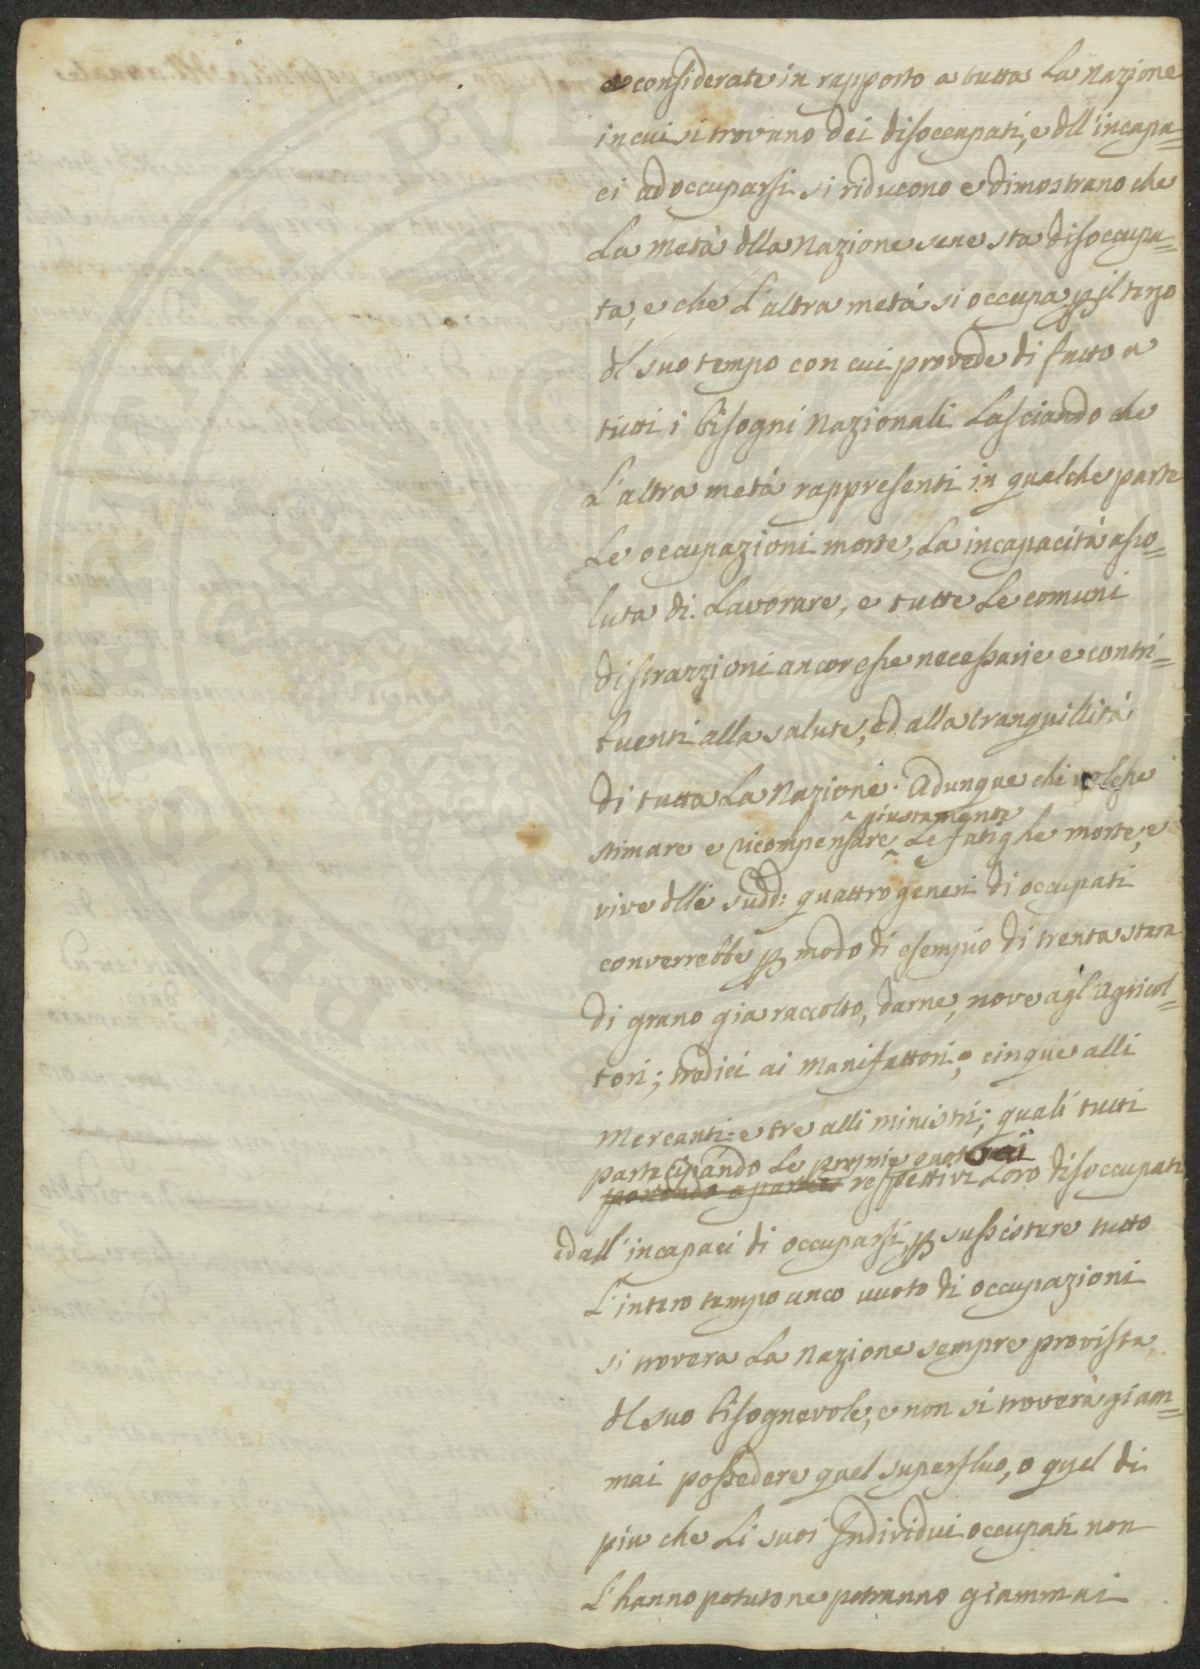 e considerate in rapporto a tutta La Nazione
in cui si trovano dei disoccupati, e dll'incapa=
ci ad occuparsi si riducono e dimostrano che
La metà dlla Nazione sene sta disoccupa=
ta, e che L'altra metà si occupa p il terzo
dl suo tempo con cui provede di fatto a
tutti i bisogni Nazionali Lasciando che
L'altra metà rappresenti in qualche parte
Le occupazioni morte, La incapacità asso=
luta di Lavorare, e tutte Le comuni
distrazzioni ancor esse necessarie e contri=
tuenti alla salute, ed alla tranquillità
di tutta La Nazione. Adunque chi volesse
^ giustamente
stimare e ricompensare ^ Le fatighe morte, e
vive dlli sudd: quattro generi di occupati
converrebbe p modo di esempio di trenta stara
di grano gia raccolto, darne, nove agl'Agricol=
tori; tredici ai Manifattori; cinque alli
Mercanti: e tre alli Ministri; quali tutti
participando Le proprie quote ai
ponendo a parte respettivi Loro disoccupati
ed all'incapaci di occuparsi, p sussistere tutto
L'intero tempo anco vuoto di occupazioni
si trovera La Nazione sempre provista
dl suo bisognevole, e non si troverà giam=
mai possedere quel superfluo, o quel di
piu che Li suoi Individui occupati non
L'hanno potuto ne potranno giammai